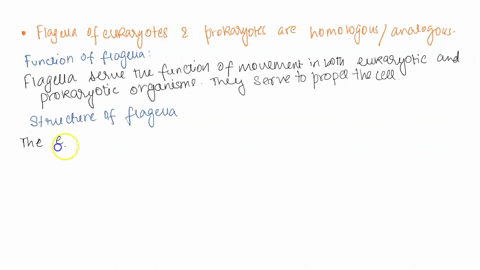 • Flagella of eukaryotes & prokaryotes are homologous/analogous.
Function of flagella:
Flagella serve the function of movement in both eukaryotic and
prokaryotic organisms. They serve to propel the cell
Structure of flagella
The